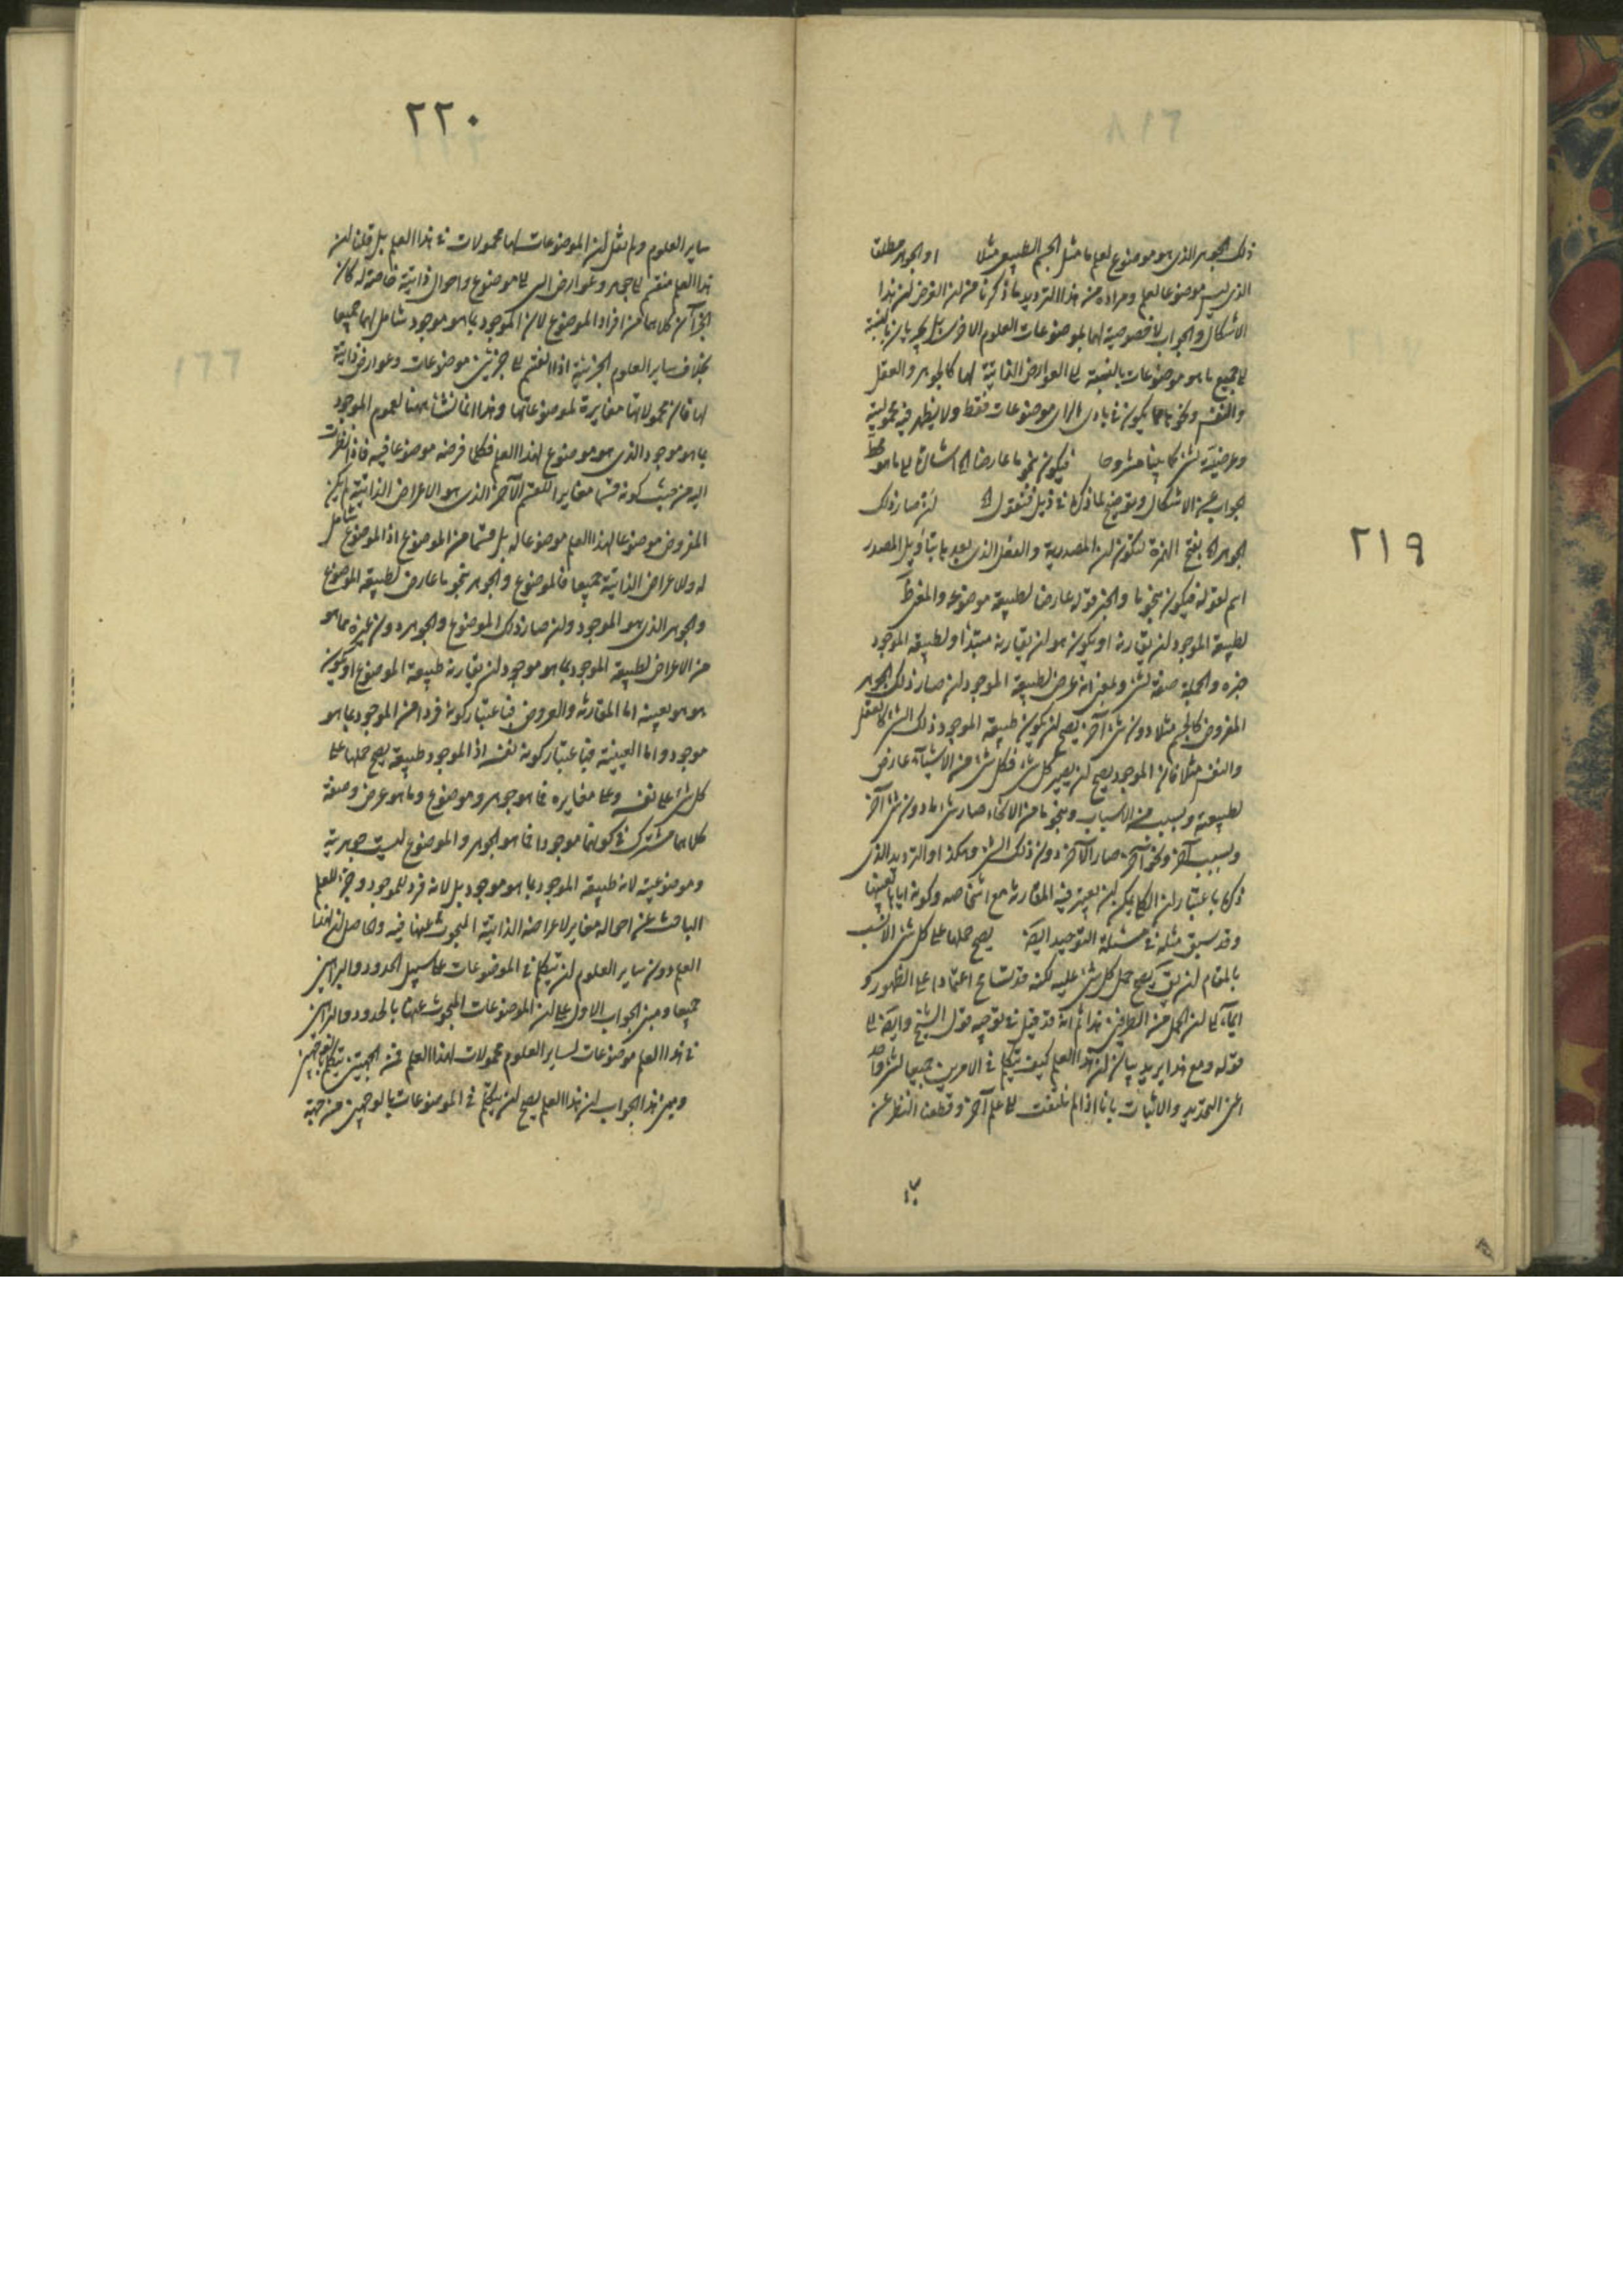 ٢١٩
ذلك الجوهر الذى هو موضوع لعلم ما مثل الجسم الطبيعى مثلا او الجوهر مطلقا
الذى ليس موضوعا لعلم ومراده من هذا الترديد ما ذكرنا من ان الغرض ان هذا
الاشكال والجواب لا خصوصية لهما بموضوعات العلوم الاخرى بل يجريان بالنسبة
الى جميع ما هو موضوعات بالنسبة الى العوارض الذاتية لها كالجوهر والعقل
والنفس ونحوها مما يكون فى بادى الراى موضوعات فقط ولا يظهر فيه محمولية
وعرضية لشئ كما بينا مشروحا فيكون بنحو ما عارضا اه اشارة الى ما هو
جواب عن الاشكال وتوضيح لما ذكره فى ذيل فنقول اه ان صار ذلك
الجوهر اه بفتح الهمزة لتكون ان المصدرية والفعل الذى بعدها بتاويل المصدر
اسم لقوله فيكون بنحو ما والخبر قوله عارضا لطبيعة موضوعه والمفرط
لطبيعة الموجود ان يقارنه او يكون هو ان يقارنه مبتدأ ولطبيعة الموجود
خبره والجملة صفة لشئ وبمعنى انه عرض لطبيعة الموجود ان صار ذلك الجوهر
المفروض كالجسم مثلا دون شئ آخر يصح ان يكون طبيعة الموجود ذلك الشئ كالعقل
والنفس مثلا فان الموجود يصح ان يصير كل شئ فكل شئ من الاشياء عارض
لطبيعته وبسبب من الاسباب وبنحو ما من الانحاء صار شئ ما دون شئ آخر
وبسبب آخر ونحو آخر صار الآخر دون ذلك الشئ وهكذا والترديد الذى
ذكره باعتبار ان الكلى يمكن ان يعتبر فيه المقارنة مع اشخاصه وكونه اياها بعينها
وقد سبق مثله فى مسئلة التوحيد ايضا يصح حملها على كل شئ الانسب
بالمقام ان يق يصح حمل كل شئ عليه لكنه قد تسامح اعتمادا على الظهور و
ايماء الى ان الحمل من الطرفين هذا ثم انه قد قيل فى توجيه قول الشيخ وايضا الى
قوله ومع هذا يريد بيان ان هذا العلم كيف يتكلم فى الامرين جميعا لشئ واحد
اعنى التحديد والاثبات بانا اذا لم نلتفت الى علم آخر وقطعنا النظر عن
٢٢٠
ساير العلوم ولم نقل ان الموضوعات لها محمولات فى هذا العلم بل قلنا ان
هذا العلم منقسم الى جوهر وعوارض اى الى موضوع واحوال ذاتية خاصة له كان
الجزآن كلاهما من افراد الموضوع لان الموجود بما هو موجود شامل لهما جميعا
بخلاف ساير العلوم الجزئية اذا انقسم الى جزئين موضوعات وعوارض ذاتية
لها فان محمولاتها مغايرة لموضوعاتها وهذا انما نشأ ههنا لعموم الموجود
بما هو موجود الذى هو موضوع لهذا العلم فكلما فرضه موضوعا فيه فاذا نظرت
اليه من حيث كونه قسما مغايرا للقسم الآخر الذى هو الاعراض الذاتية لم يكن
المفروض موضوعا لهذا العلم موضوعا له بل قسما من الموضوع اذ الموضوع شامل
له ولاعراض الذاتية جميعا فالموضوع والجوهر بنحو ما عارض لطبيعة الموضوع
والجوهر الذى هو الموجود وان صار ذلك الموضوع والجوهر دون غيره مما هو
من الاعراض لطبيعة الموجود بما هو موجود ان يقارنه طبيعة الموضوع او يكون
هو هو بعينه اما المقارنة والعروض فباعتبار كونه فردا من الموجود بما هو
موجود واما العينية فباعتبار كونه نفسه اذ الموجود طبيعة يصح حملها على
كل شئ على نفسه وعلى مغايره فما هو جوهر وموضوع وما هو عرض وصفة
كلاهما مشترك فى كونهما موجودا فما هو الجوهر والموضوع ليست جوهريته
وموضوعيته لانه طبيعة الموجود بما هو موجود بل لانه فرد للموجود وجزء للعلم
الباحث عن احواله مغاير لاعراضه الذاتية المبحوث عنها فيه والحاصل ان لهذا
العلم دون ساير العلوم ان يتكلم فى الموضوعات على سبيل الحدود والبراهين
جميعا ومبنى الجواب الاول على ان الموضوعات المبحوث عنها بالحدود والبراهين
فى هذا العلم موضوعات لساير العلوم محمولات لهذا العلم فمن الجهتين يتكلم بالوجهين
ومبنى هذا الجواب ان هذا العلم يصح ان يتكلم فى الموضوعات بالوجهين من جهة